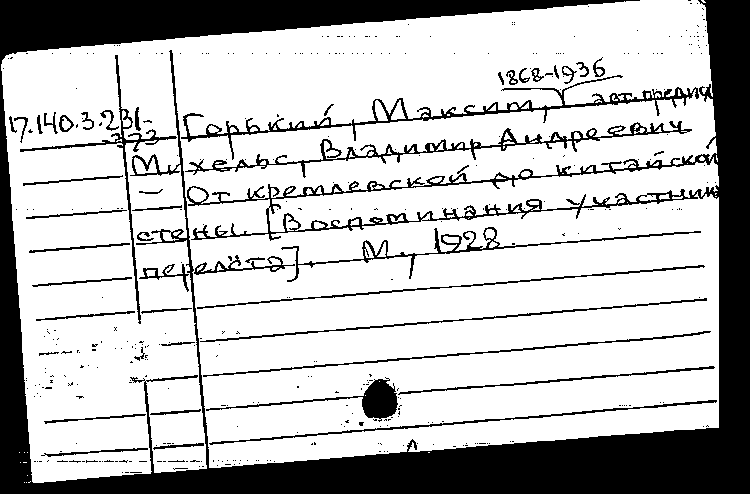 1868-1936
17.140.3.231- Горький, Максим, авт.предис
-373
Михельс, Владимир Андреевич
— От кремлевской до китайской
стены. [Воспоминания участник
перелёта]. М., 1928.